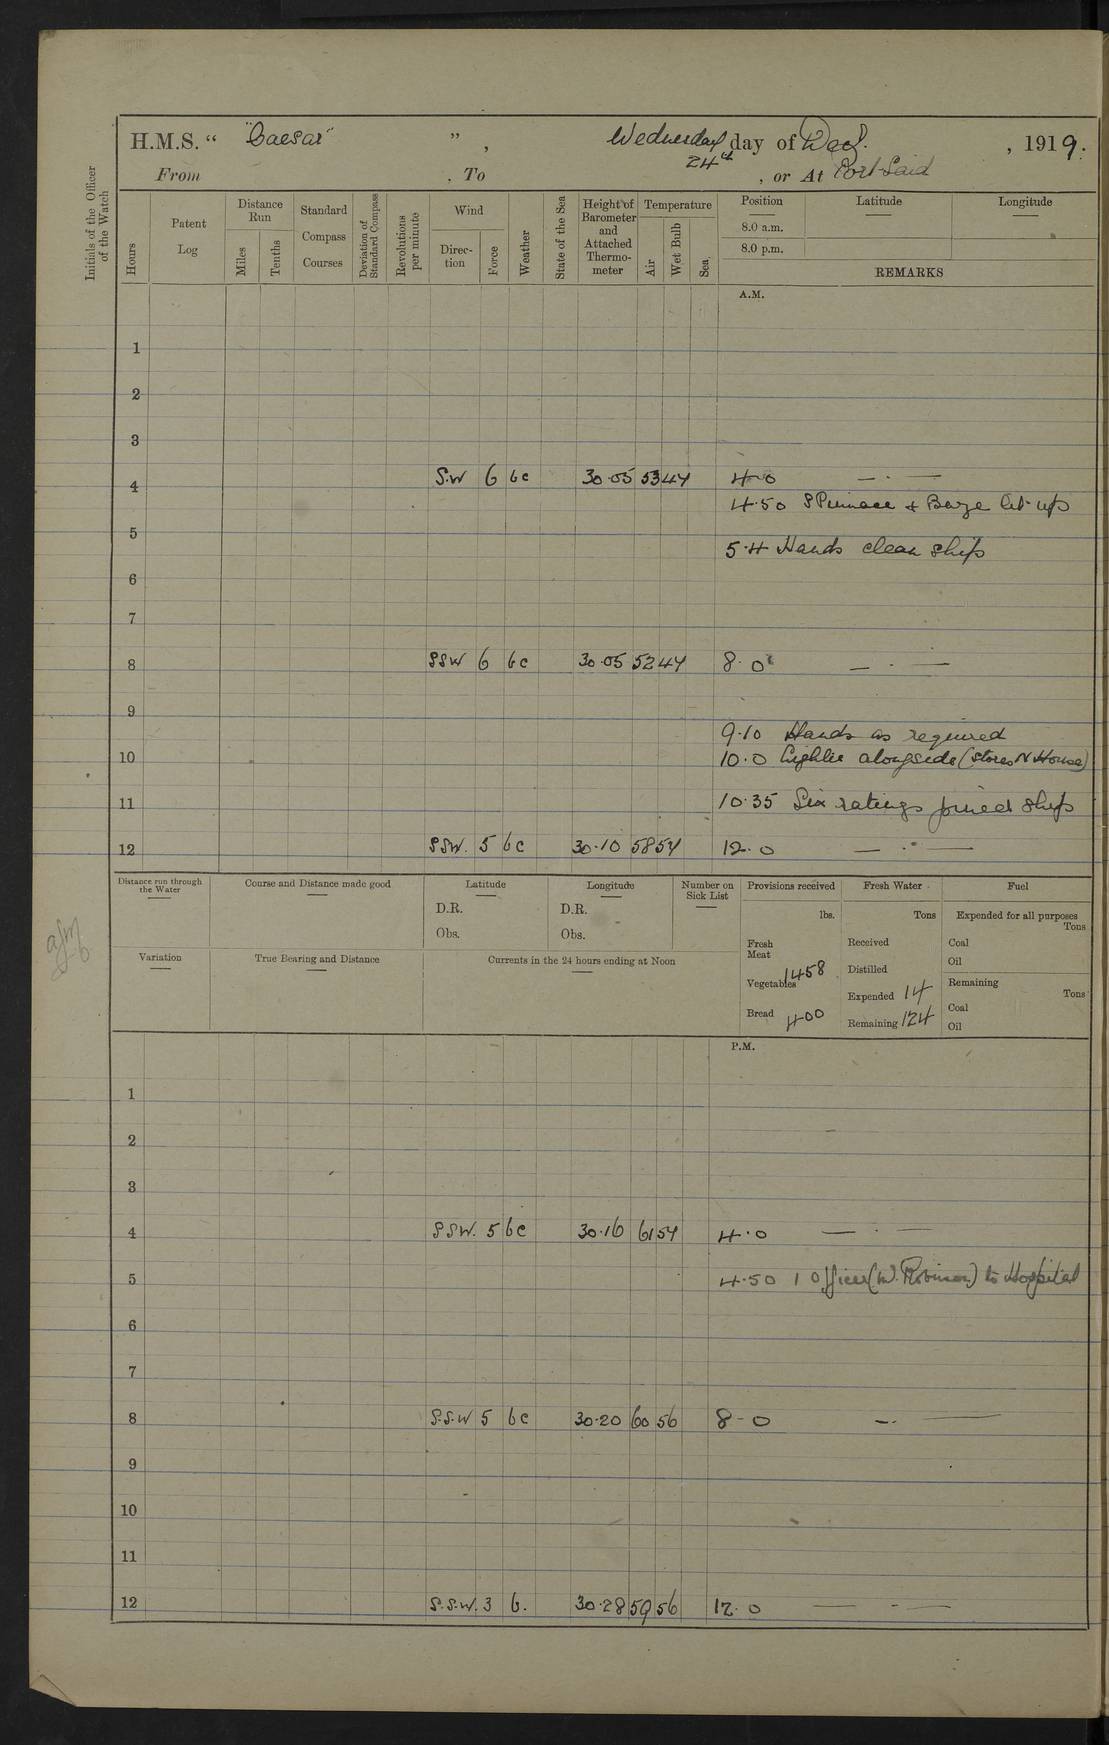 H.M.S. “ "Caesar" ” , Wednesday day of Dec. , 1919.
24th
From , To , or At Port Said
Initials of the Officer of the Watch
Hours
Patent Log
Distance Run
Miles
Tenths
Standard Compass Courses
Deviation of Standard Compass
Revolutions per minute
Wind
Direction
Force
Weather
State of the Sea
Height of Barometer and Attached Thermometer
Temperature
Air
Wet Bulb
Sea
Position Latitude Longitude
8.0 a.m.
8.0 p.m.
REMARKS
A.M.
1
2
3
4 S.W 6 bc 30.05 53 47 4.0 — . —
4.50 S Pinnace + Barge lit up
5
5.4 Hands clean ship
6
7
8 SSW 6 bc 30.05 52 47 8.0 — . —
9
9.10 Hands as required
10 10.0 Lighter alongside (Stores N House)
11 10.35 Six ratings joined ship
12 SSW. 5 bc 30.10 58 54 12.0 — . —
Distance run through the Water
Course and Distance made good
Latitude
D.R.
Obs.
Longitude
D.R.
Obs.
Number on Sick List
Provisions received
lbs.
Fresh Meat
Vegetables 1458
Bread 400
Fresh Water
Tons
Received
Distilled
Expended 14
Remaining 124
Fuel
Expended for all purposes
Tons
Coal
Oil
Remaining
Tons
Coal
Oil
Variation
True Bearing and Distance
Currents in the 24 hours ending at Noon
P.M.
1
2
3
4 SSW. 5 bc 30.16 61 54 4.0 — . —
5 4.50 1 Officer (W. Robinson) to Hospital
6
7
8 S.S.W 5 bc 30.20 60 56 8-0 — . —
9
10
11
12 S.S.W. 3 b. 30.28 59 56 12.0 — . —